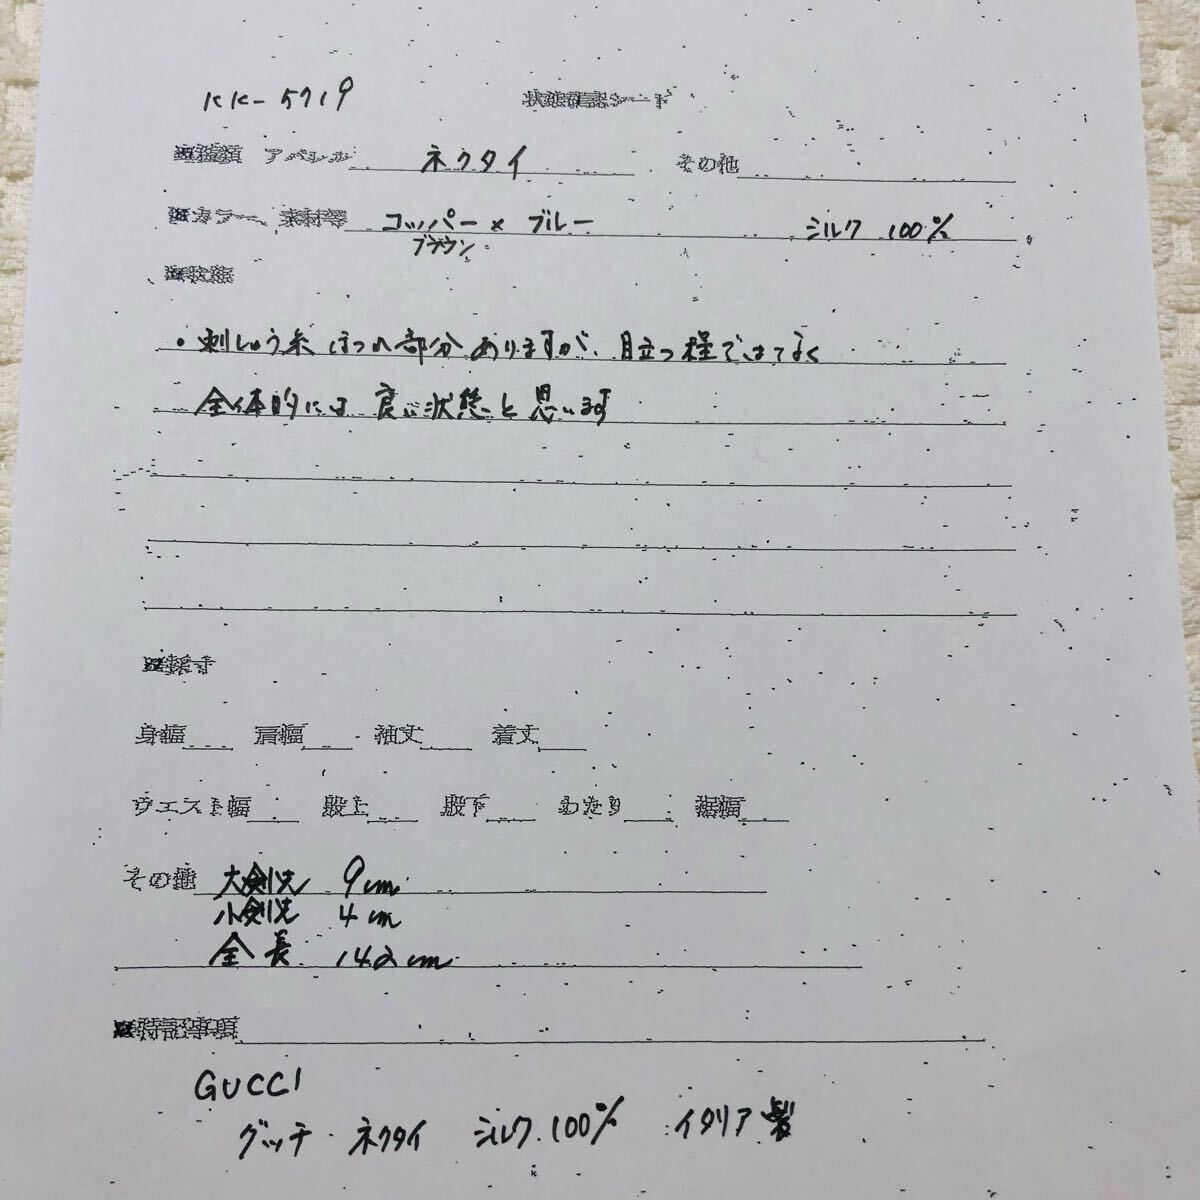 KK-5719 状態確認シート
※種類 アパレル ネクタイ その他
※カラー、素材等 コッパー × ブルー シルク 100%
ブラウン
※状態
・刺しゅう糸 ほつれ部分 ありますが、目立つ程ではなく
全体的には 良い状態と思います
※採寸
身幅 肩幅 袖丈 着丈
ウエスト幅 股上 股下 わたり 裾幅
その他 大剣先 9cm
小剣先 4cm
全長 142cm
※特記事項
GUCCI
グッチ ネクタイ シルク 100% イタリア製